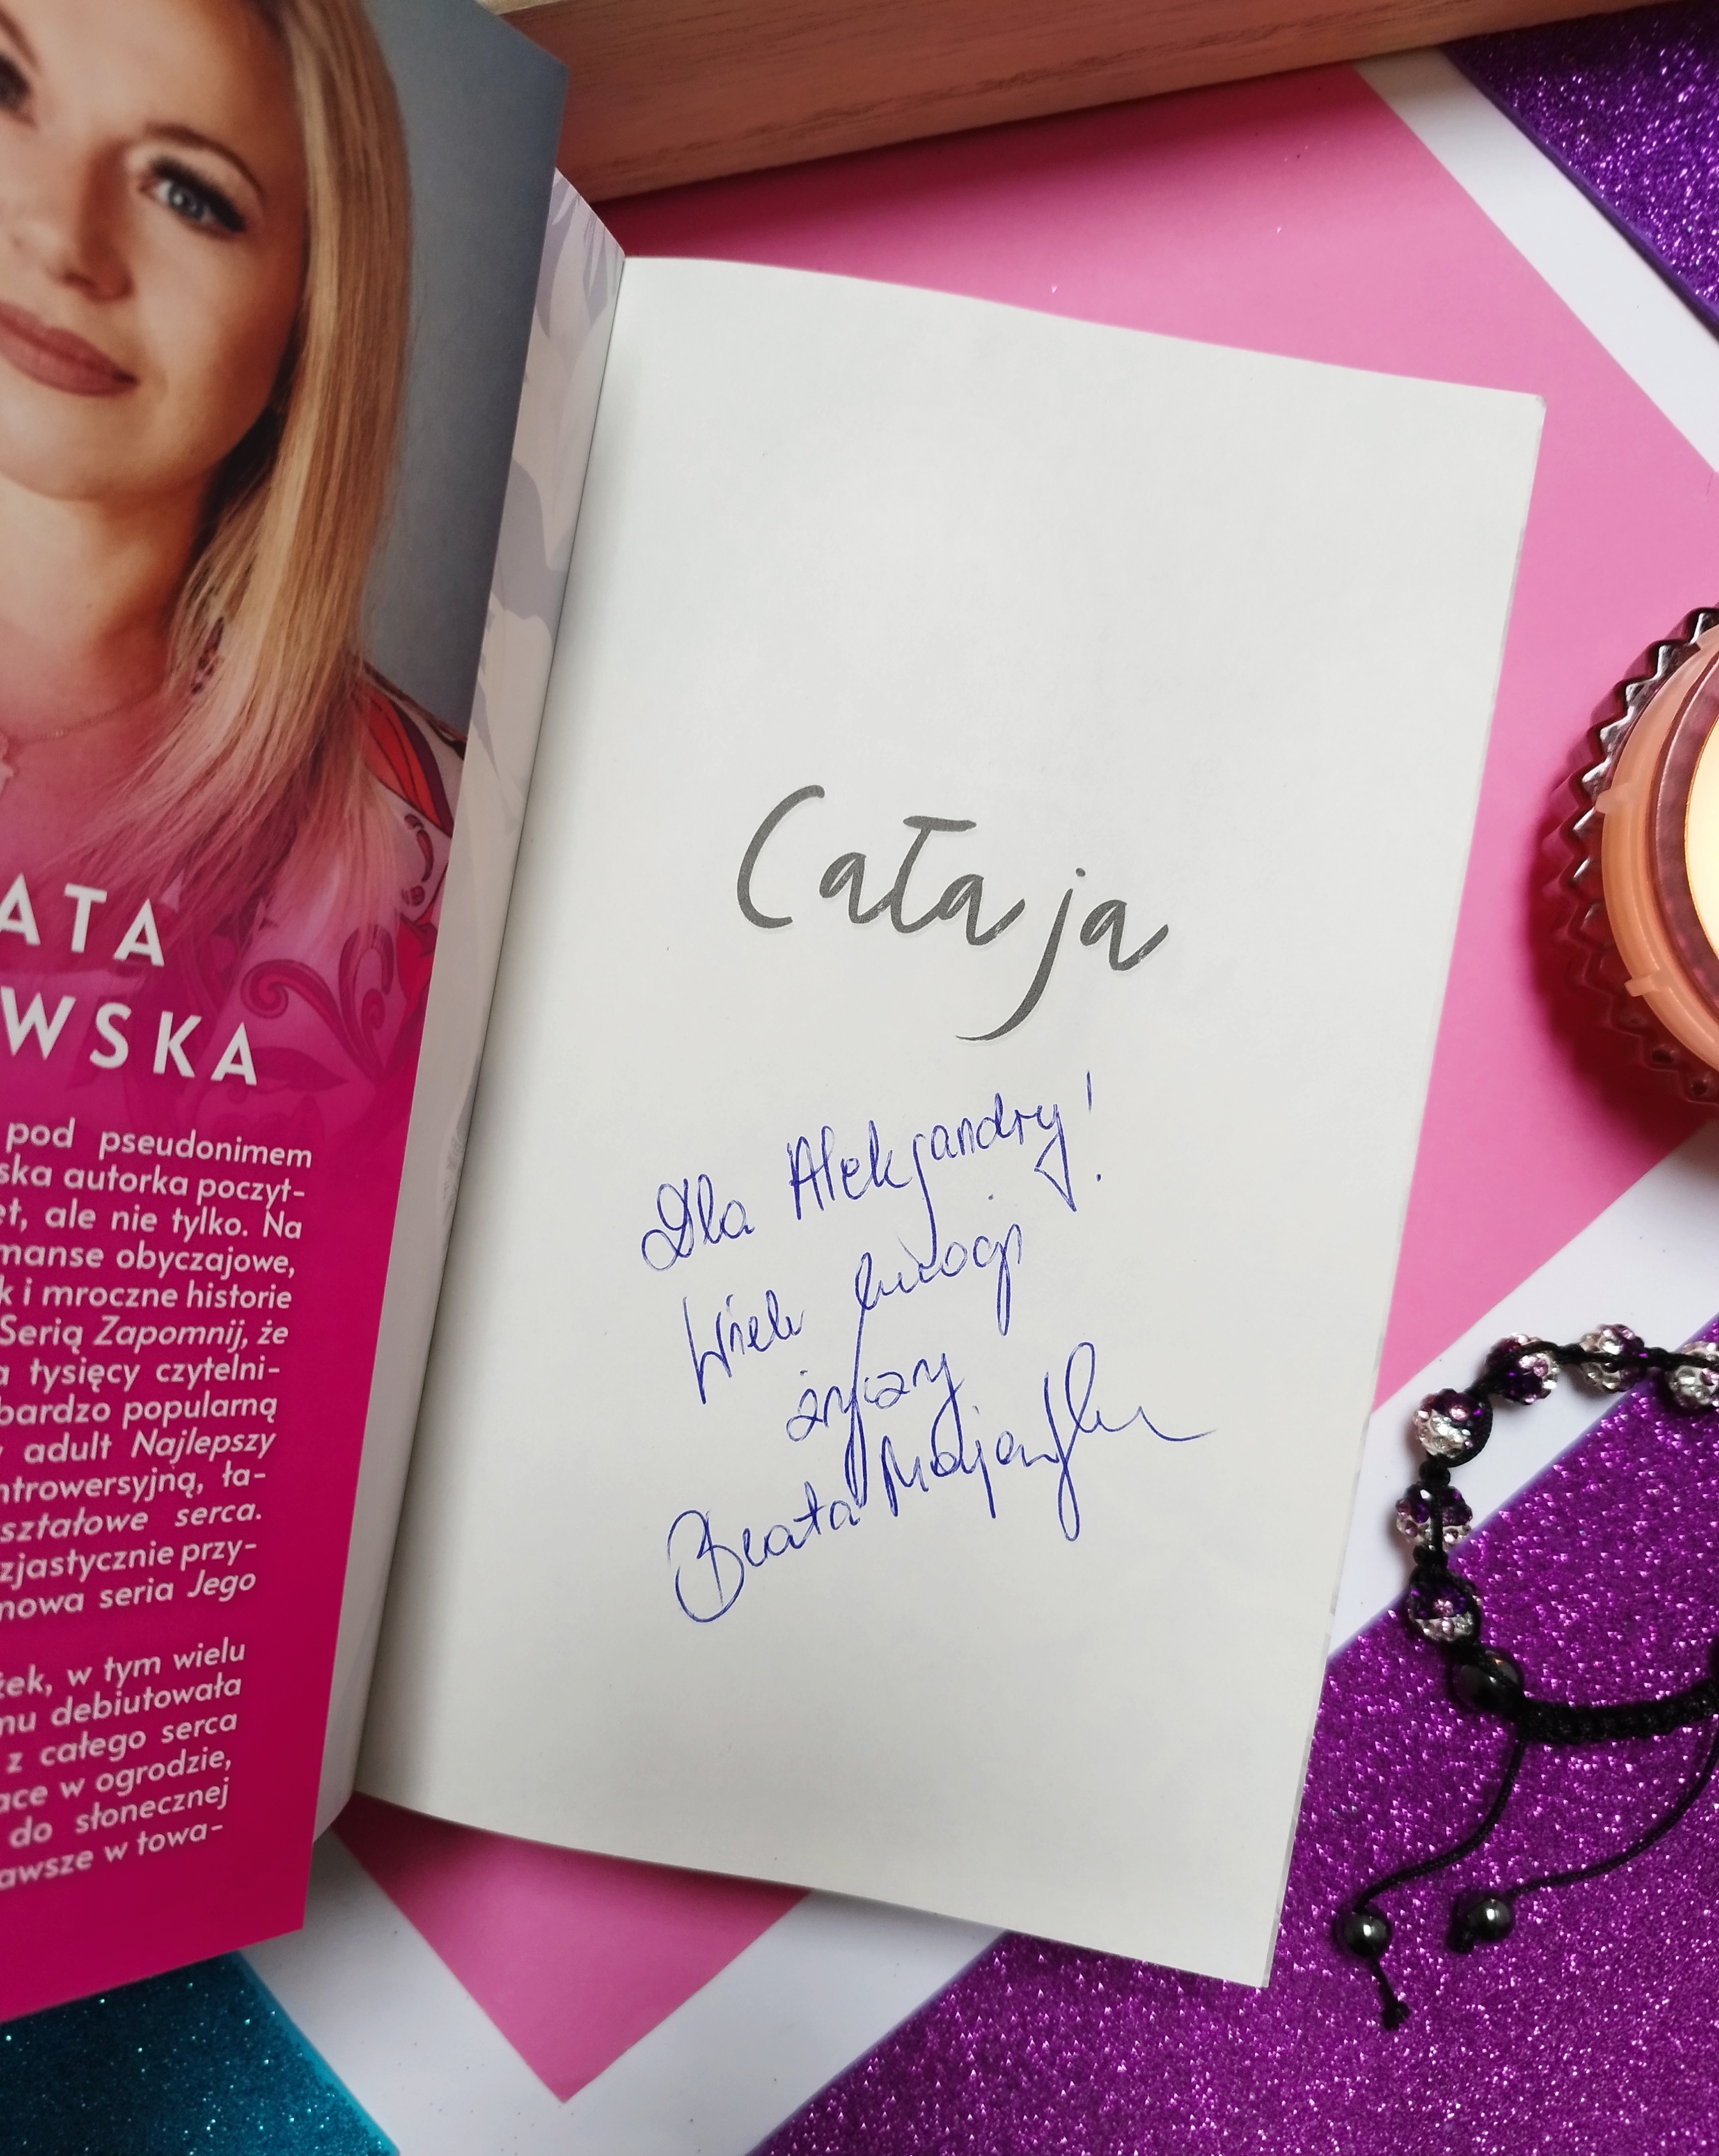 ATA
WSKA
pod pseudonimem
ska autorka poczyt-
et, ale nie tylko. Na
manse obyczajowe,
k i mroczne historie
Serią Zapomnij, że
a tysięcy czytelni-
bardzo popularną
adult Najlepszy
ntrowersyjną, ła-
ształowe serca.
zjastycznie przy-
nowa seria Jego
żek, w tym wielu
mu debiutowała
z całego serca
ace w ogrodzie,
do słonecznej
awsze w towa-
Cała ja
Dla Aleksandry!
Wiele emocji
życzy
Beata Majewska